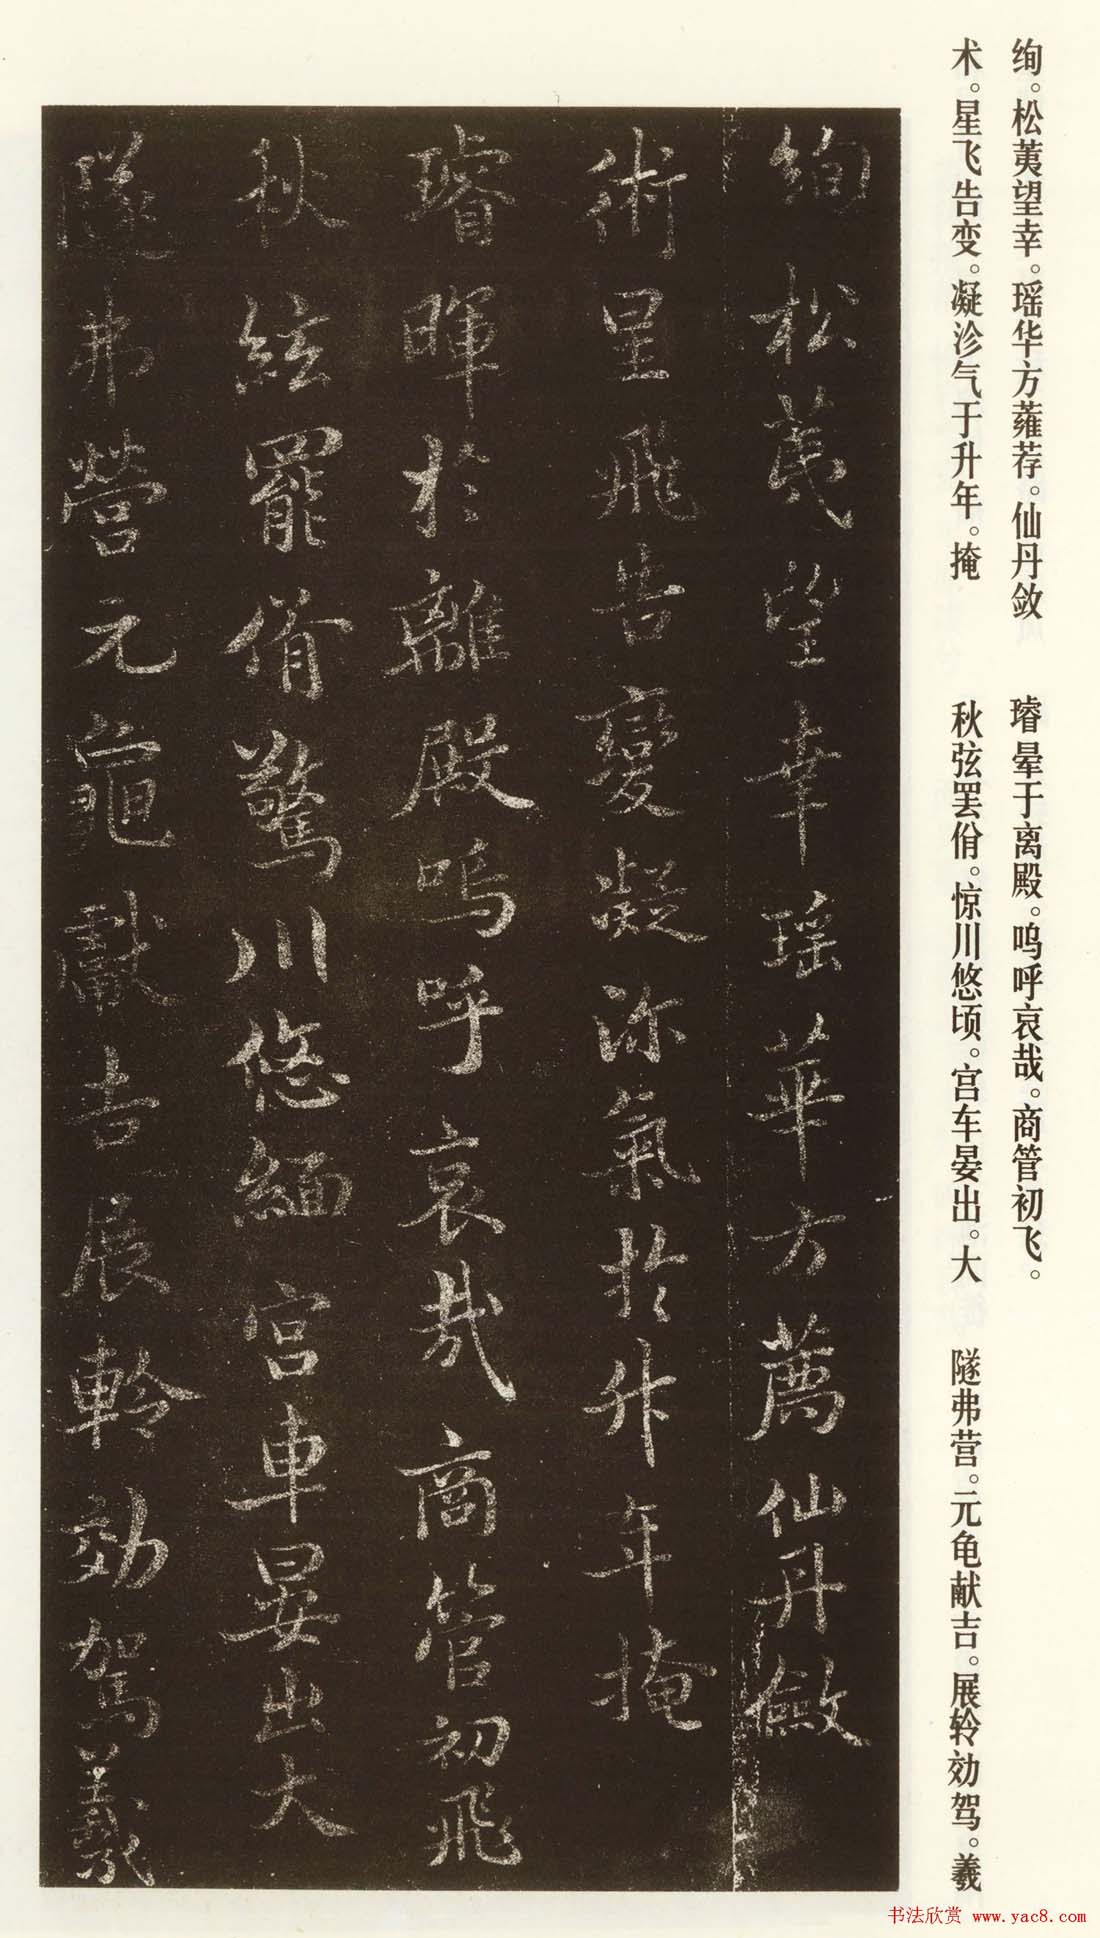 绚。松荑望幸。瑶华方蕹荐。仙丹敛
术。星飞告变。凝沴气于升年。掩
璿晕于离殿。呜呼哀哉。商管初飞。
秋弦罢佾。惊川悠顷。宫车晏出。大
隧弗营。元龟献吉。展轸効驾。羲
絢松荑望幸瑶華方薦仙丹斂
術星飛告變凝沴氣於升年掩
璿暉於離殿嗚呼哀哉商管初飛
秋絃罷佾驚川悠緬宮車晏出大
隧弗營元龜獻吉展軨効駕羲
书法欣赏 www.yac8.com